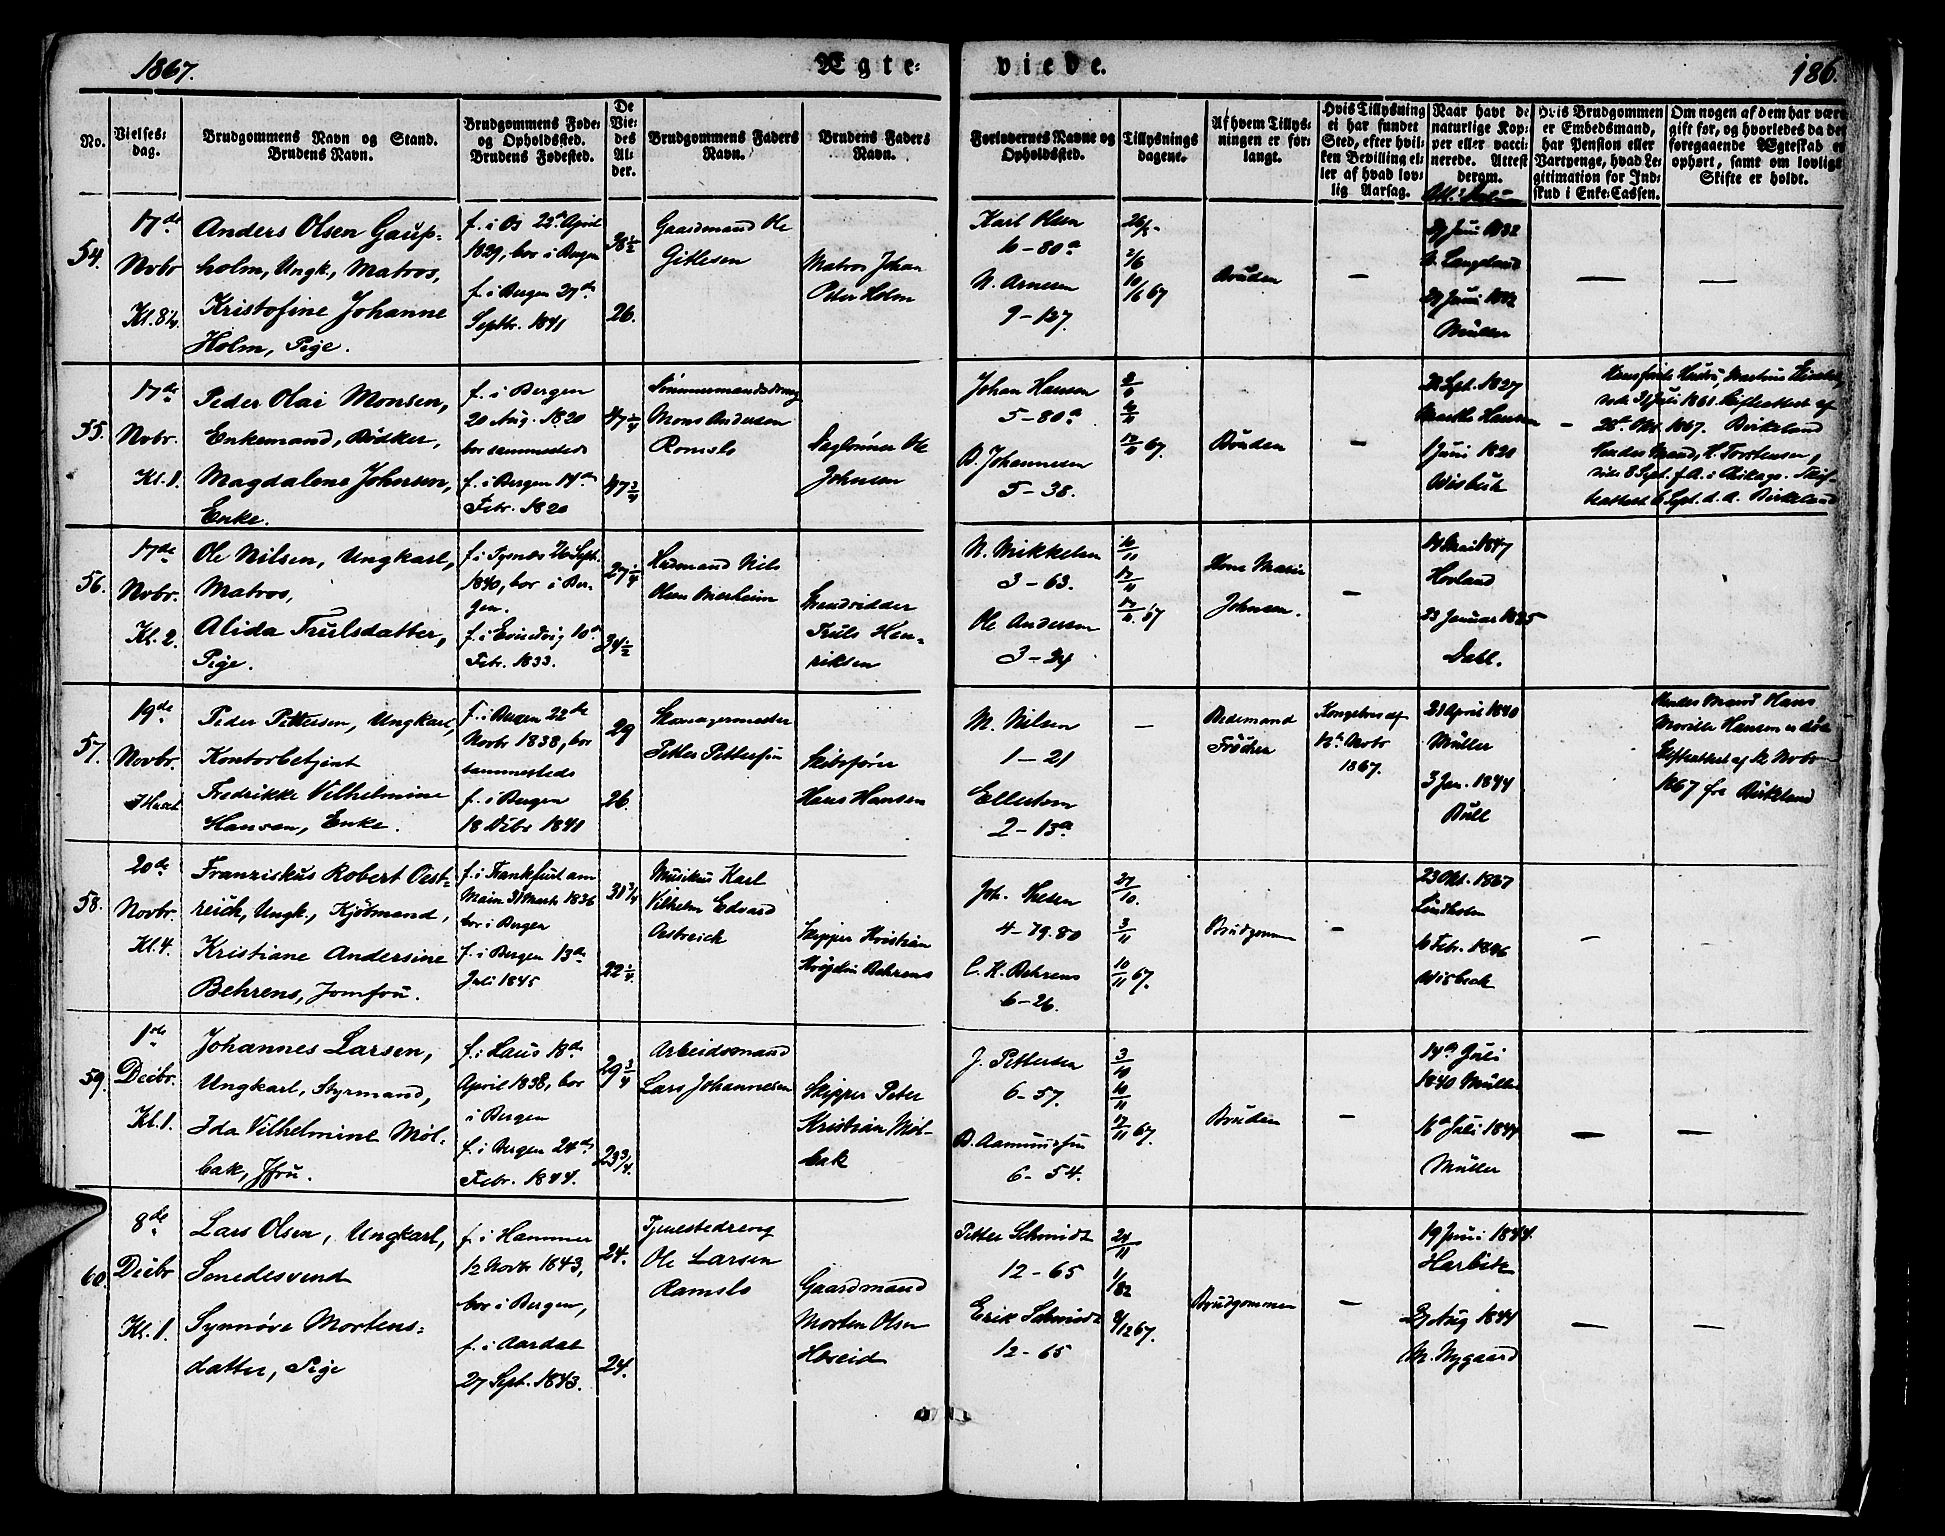 1867.
Ægte-
viede.
186.
No.
Vielses-
dag.
Brudgommens Navn og Stand.
Brudens Navn.
Brudgommens Føde-
og Opholdssted.
Brudens Fødested.
De
Vie-
des
Al-
der.
Brudgommens Faders
Navn.
Brudens Faders
Navn.
Forlovernes Navne og
Opholdssted.
Tillysnings
dagene.
Af hvem Tillys-
ningen er for-
langt.
Hvis Tillysning
ei har fundet
Sted, efter hvil-
ken Bevilling el-
ler af hvad lov-
lig Aarsag.
Naar havt de
naturlige Kop-
per eller vacci-
nerede. Attest
derom.
Hvis Brudgommen
er Embedsmand,
har Pension eller
Vartpenge, hvad Le-
gitimation for Ind-
skud i Enke-Cassen.
Om nogen af dem har være
gift før, og hvorledes da de
foregaaende Ægteskab er
ophørt, samt om lovligt
Skifte er holdt.
54.
17de
Novbr
Kl. 8½
Anders Olsen Gaup-
holm, Ungk., Matros,
Kristofine Johanne
Holm, Pige.
f. i Os 22de April
1829, bor i Bergen
f. i Bergen 27de
Septbr. 1841
38½
26.
Gaardmand Ole
Gitlesen
Matros Johan
Peter Holm
Karl Olsen
6-80a
N. Arnesen
9-127.
26/5
2/6
10/6 67
Bruden
—
27 Juni 1832
Langeland
Müller
—
—
55.
17de
Novbr.
Kl. 1.
Peder Olai Monsen,
Enkemand, Bødker,
Magdalene Johnsen,
Enke.
f. i Bergen
20 Aug. 1820
bor sammesteds
f. i Bergen 14de
Febr. 1820
47¼
47¾
Mons Andersen
Romslo
Ole
Johnsen
Johan Hansen
5-80a
B. Johannesen
5-38.
67.
Bruden
—
Sept. 1827
Hansen
1 Juni 1820
Wisbech
—
1867. Birkeland
Hendes Mand, H. Torstensen,
Birkeland
56.
17de
Novbr.
Kl. 2.
Ole Nilsen, Ungkarl,
Matros,
Alida Trulsdatter,
Pige.
f. i Tysnes 26 Sept.
1840, bor i Ber-
gen.
f. i Evindvig 10de
Febr. 1833.
27¼
34½
Huusmand Nils
Olsen
Strandsidder
Truls Hen-
riksen
N. Mikkelsen
3-63.
Ole Andersen
3-24
10/11
67
Marie
Johnsen.
—
19 Mai 1847
Hovland
23 Januar 1835
Dahl.
57.
19de
Novbr.
Peder Pettersen, Ungkarl,
Kontorbetjent
Fredrikke Vilhelmine
Hansen, Enke.
f. i Bergen 22de
Novbr 1838, bor
sammesteds
f. i Bergen
18 Decbr 1841
29
26.
Skomagermester
Petter Pettersen
Skibsfører
Hans Hansen
M. Nilsen
1-21
Ellertsen
2-13a
—
Bedemand
Kongebrev af
Novbr
1867.
21 April 1840
Müller
3 Jan. 1844
Bull
Hendes Mand Hans
Hansen er død
Novbr
1867 fra Birkeland
58.
20de
Novbr.
Kl. 4.
Franziskus Robert Oest-
reich, Ungk., Kjøbmand,
Kristiane Andersine
Behrens, Jomfru.
f. i Frankfurt am
Main 31 Marts 1836
bor i Bergen
f. i Bergen 13de
Juli 1845
31¾
22¼
Musikus Karl
Vilhelm Edvard
Oestreich
Skipper Kristian
Behrens
Joh.
4-79.80
C. K. Behrens
6-26.
27/10.
3/11
10/11 67.
Brudgommen
—
23 Okt. 1867
Lindholm
16 Febr. 1846
Wisbech
—
—
59.
1ste
Decbr.
Kl. 1.
Johannes Larsen,
Ungkarl, Styrmand,
Ida Vilhelmine Møl-
bak, Jfru.
f. i Haus 18de
April 1838, bor
i Bergen
f. i Bergen 24de
Febr. 1844.
29¾
23¾.
Arbeidsmand
Lars Johannesen
Skipper Peter
Kristian Møl-
bak
J. Pettersen
6-57.
B. Aamundsen
6-54.
3/10
10/11
17/11 67.
Bruden
—
14de Juli
1840 Müller
16de Juli 1844
Müller
—
—
60.
8de
Decbr
Kl. 1.
Lars Olsen, Ungkarl,
Smedesvend
Synnøve Mortens-
datter, Pige
f. i Hammer
12 Novbr 1843,
bor i Bergen,
f. i Aardal
27 Sept. 1843.
24.
24.
Tjenestedreng
Ole Larsen
Ramslo
Gaardmand
Morten Olsen
Hæreid
Petter Schmidt
12-65
Erik Schmidt
12-65
24/11
1/12
8/12 67.
Brudgommen
—
19 Juni 1844.
Harbitz
Aug 1844
M. Nygaard
—
—